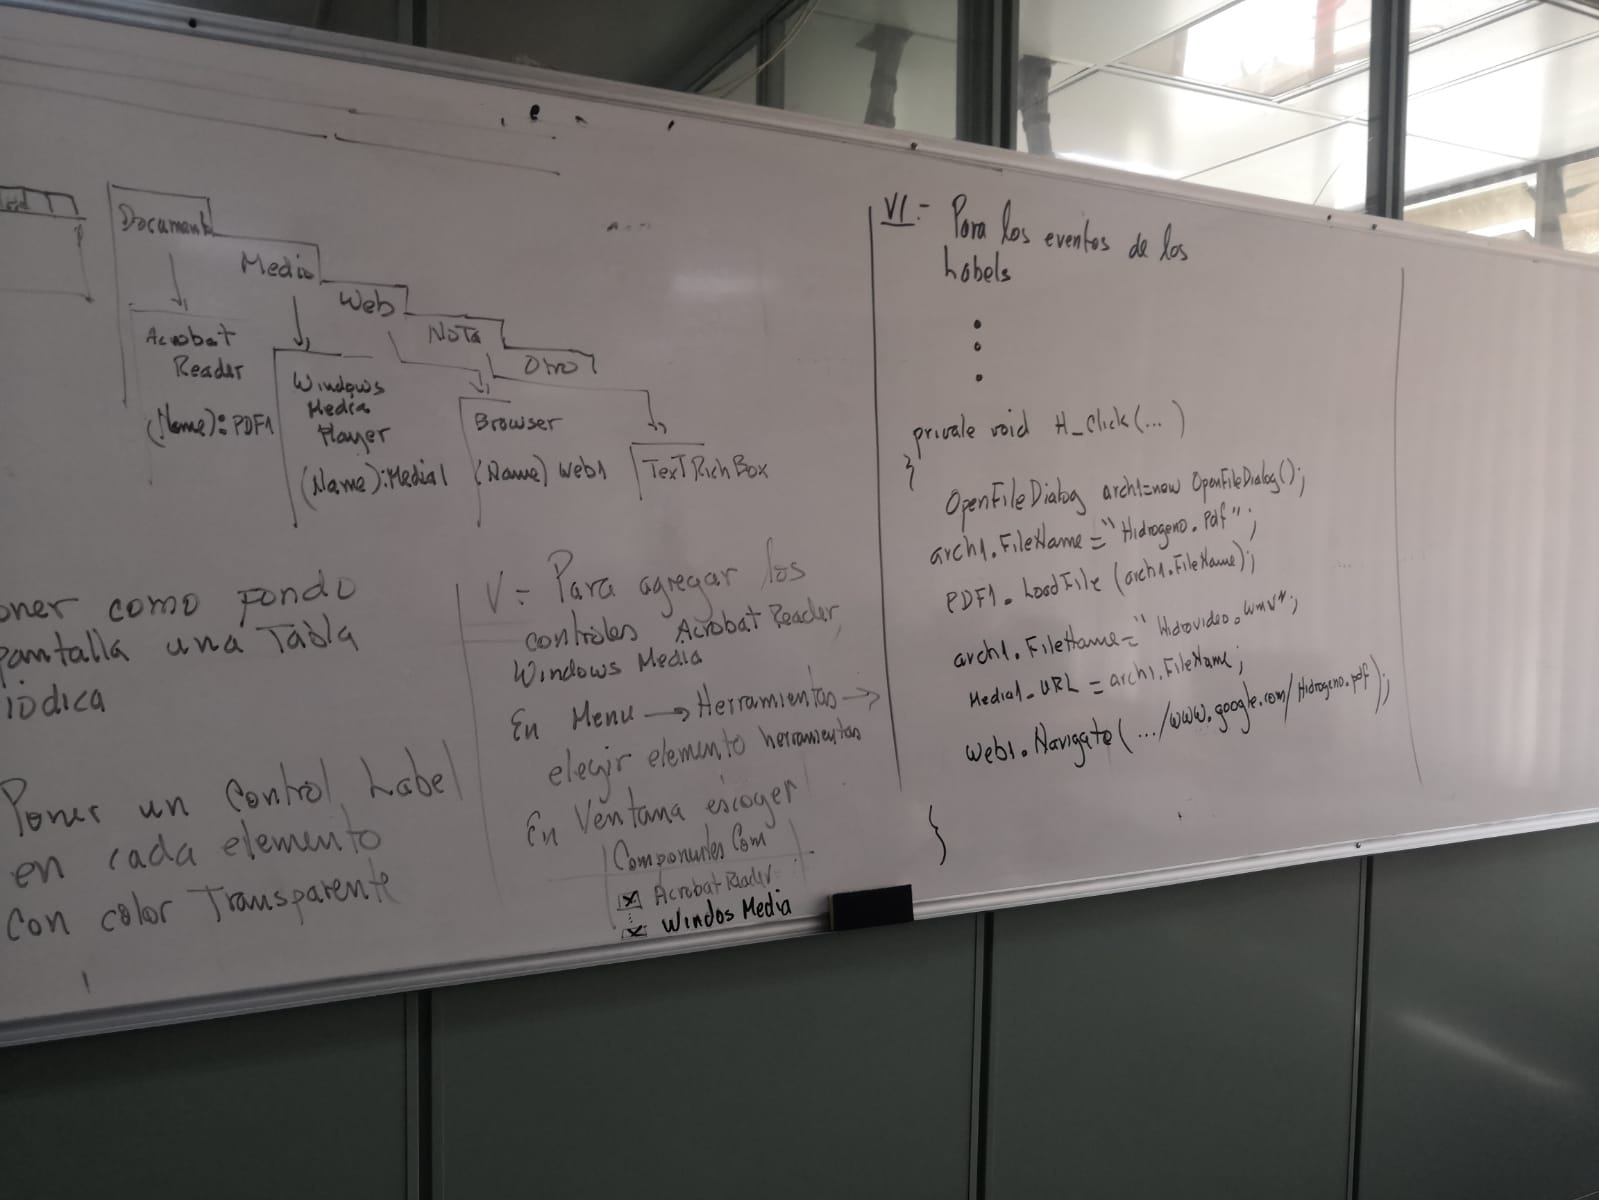 Document
Media
Web
Nota
Otro
Acrobat
Reader
(Name): PDF1
Windows
Media
Player
(Name): Media1
Browser
(Name) Web1
TexT Rich Box
oner como Fondo
pantalla una Tabla
iódica
Poner un Control Label
en cada elemento
Con color Transparente
V = Para agregar los
controles Acrobat Reader,
Windows Media
En Menu → Herramientas →
elegir elemento herramientas
En Ventana escoger
Componentes Com
Acrobat Reader
Windos Media
VI.- Para los eventos de los
Labels
private void H_Click(...)
{
OpenFileDialog arch1=new OpenFileDialog();
arch1.FileName="Hidrogeno.Pdf";
PDF1.LoadFile (arch1.FileName);
arch1.FileName="Hidrovideo.wmv";
Media1_URL = arch1.FileName;
Web1.Navigate(.../www.google.com/Hidrogeno.pdf);
}